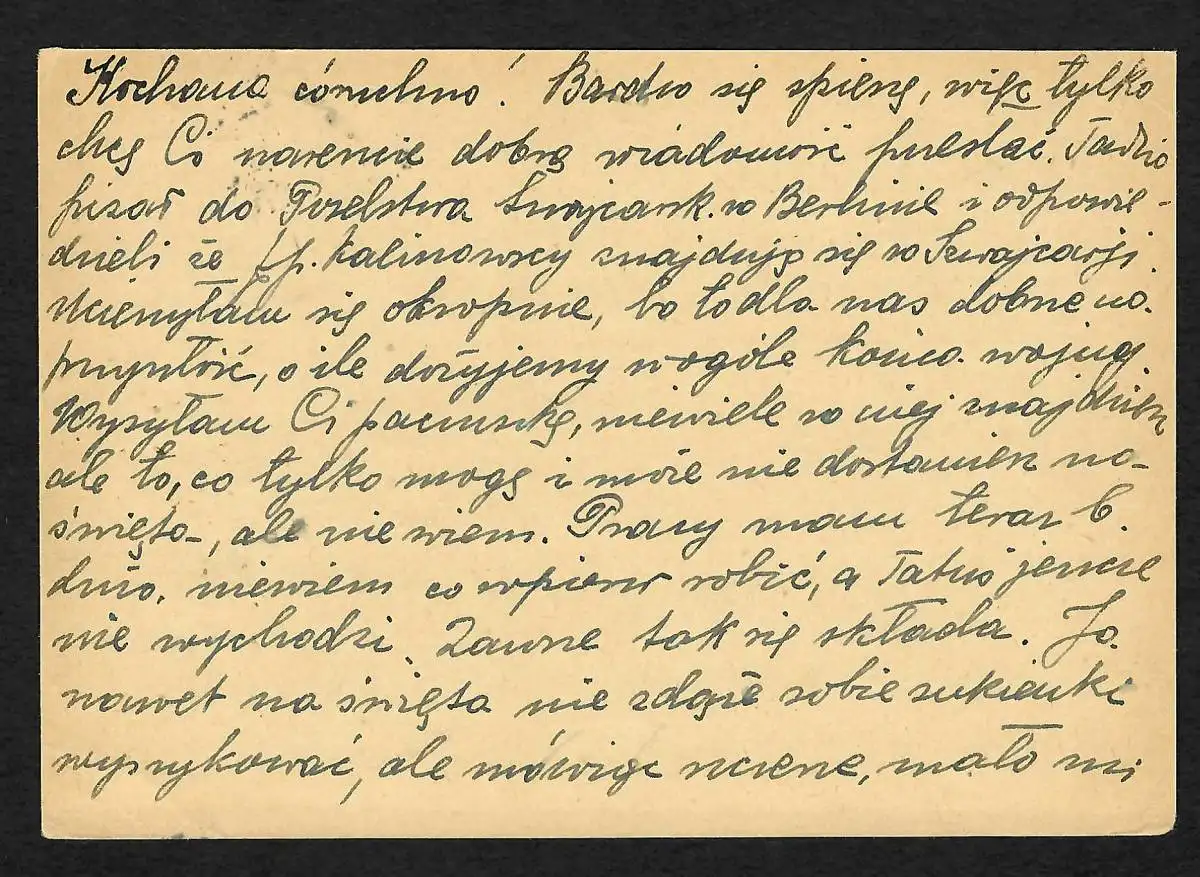 Kochana córuchno! Bardzo się spieszę, więc tylko
chcę Ci nareszcie dobrą wiadomość przesłać. Tadzio
pisał do Poselstwa Szwajcarsk. w Berlinie i odpowie-
dzieli że pp. Kalinowscy znajdują się w Szwajcarji.
Ucieszyłam się okropnie, bo to dla nas dobrze na
przyszłość, o ile dożyjemy wogóle końca wojny
Wysyłam Ci paczuszkę, niewiele w niej znajdziesz
ale to, co tylko mogę i może nie dostaniesz na-
święta, ale nie wiem. Pracy mam teraz b.
dużo, niewiem co wpierw robić, a Tatuś jeszcze
nie wychodzi. Zawsze tak się składa. Ja
nawet na święta nie zdążę sobie sukienki
wyszykować, ale mówiąc szczerze, mało mi